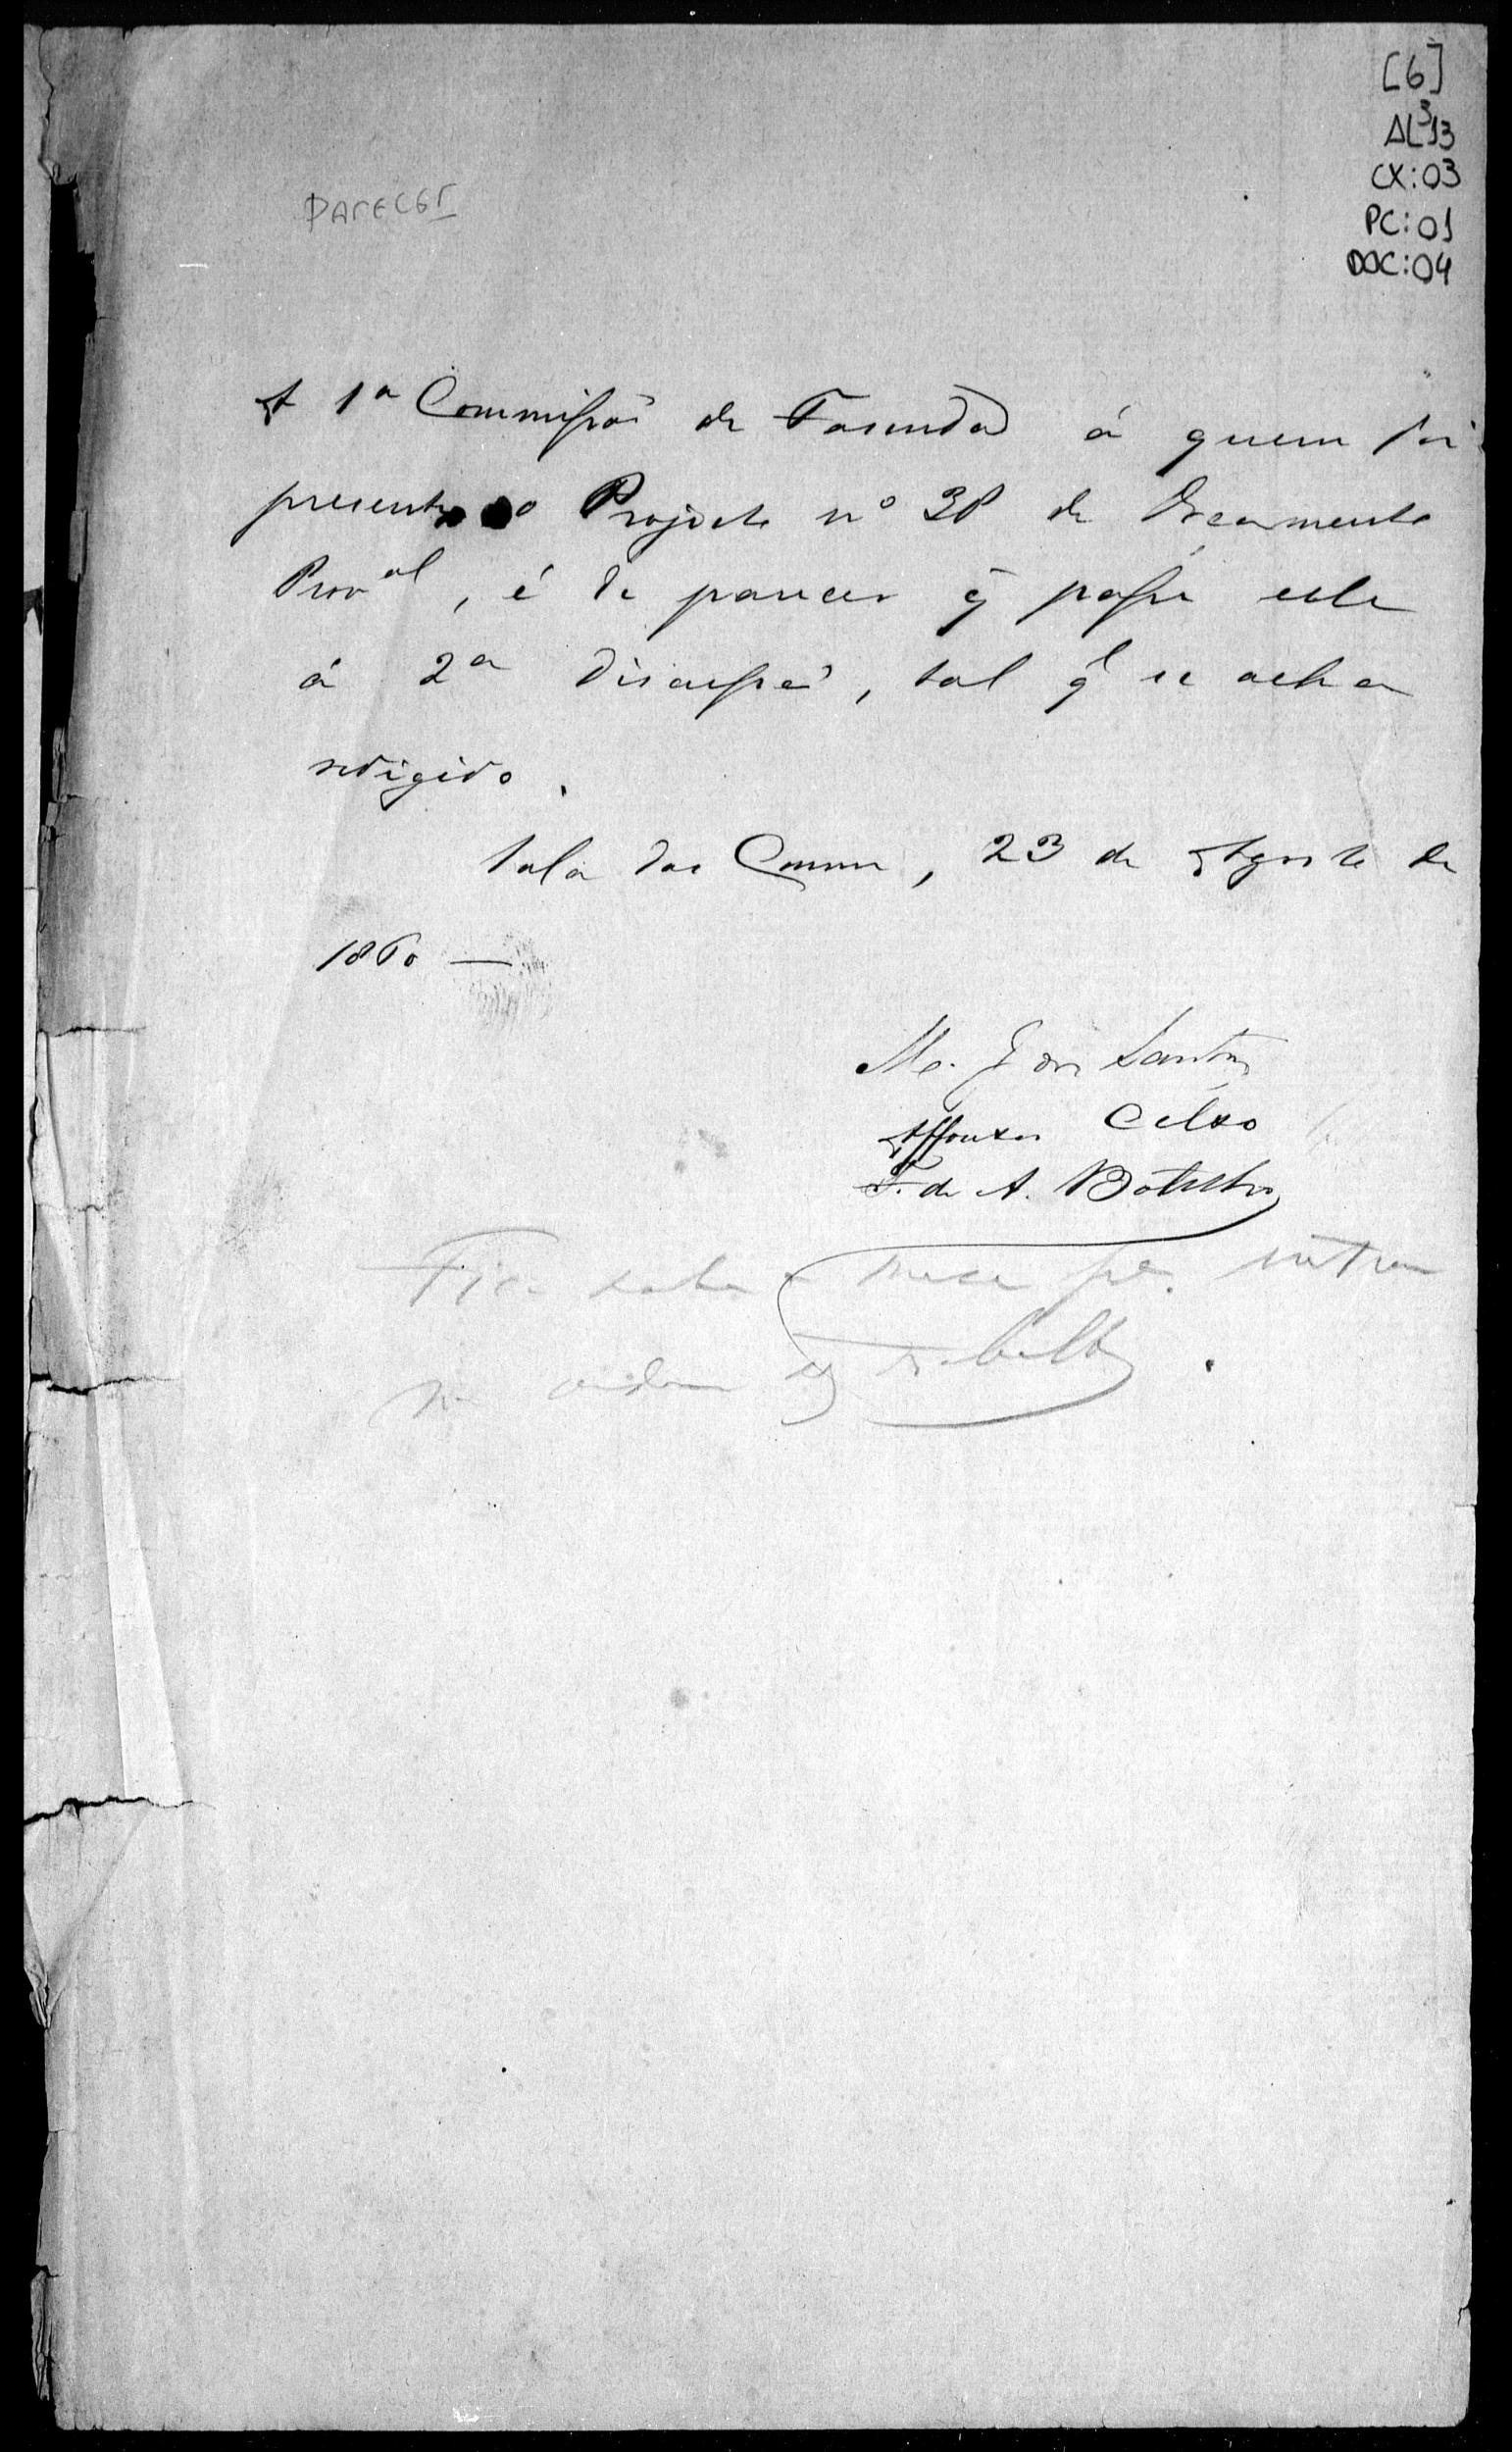 [6]
AL³13
CX:03
PC:01
DOC:04
Parecer
A 1ª Commissão de Fasenda á quem foi
presente o Projecto nº 38 de Orcamento
Proval, é de parecer q̃ passe este
á 2ª discussão, tal ql se acha
redigido.
Sala das Comm, 23 de Agosto de
1860 —
M. J dos Santos
Affonso Celso
F. de A. Botelho
Fica sobre a mesa pª. entrar
na ordem dos trabalhos